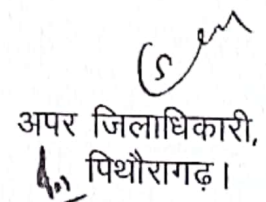 अपर जिलाधिकारी,
पिथौरागढ़।